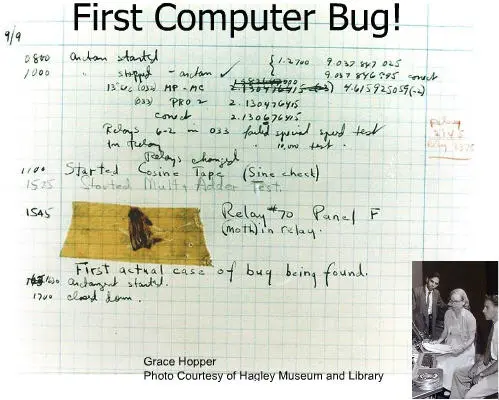 First Computer Bug!
9/9
0800 antan started
1000 " stopped - antan ✓ { 1.2700 9.037 847 025
9.037 846 995 conect
13"uc (032) MP - MC 2.130476415 (-3) 4.615925059(-2)
(033) PRO 2 2.130476415
conect 2.130676415
Relays 6-2 in 033 failed special speed test
In Relay " 10,000 test.
Relay
Relays changed
1100 Started Cosine Tape (Sine check)
1525 Started Mult + Adder Test.
1545 Relay #70 Panel F
(Moth) in relay.
First actual case of bug being found.
antangent started.
1700 closed down.
Grace Hopper
Photo Courtesy of Hagley Museum and Library